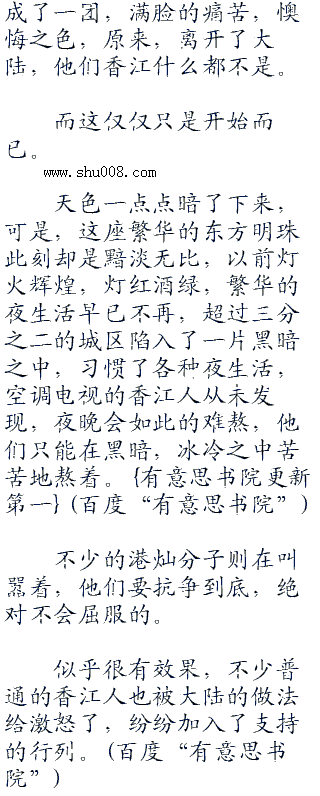 成了一团，满脸的痛苦，懊
悔之色，原来，离开了大
陆，他们香江什么都不是。
而这仅仅只是开始而
已。
www.shu008.com
天色一点点暗了下来，
可是，这座繁华的东方明珠
此刻却是黯淡无比，以前灯
火辉煌，灯红酒绿，繁华的
夜生活早已不再，超过三分
之二的城区陷入了一片黑暗
之中，习惯了各种夜生活，
空调电视的香江人从未发
现，夜晚会如此的难熬，他
们只能在黑暗，冰冷之中苦
苦地熬着。{有意思书院更新
第一}(百度“有意思书院”)
不少的港灿分子则在叫
嚣着，他们要抗争到底，绝
对不会屈服的。
似乎很有效果，不少普
通的香江人也被大陆的做法
给激怒了，纷纷加入了支持
的行列。(百度“有意思书
院”)